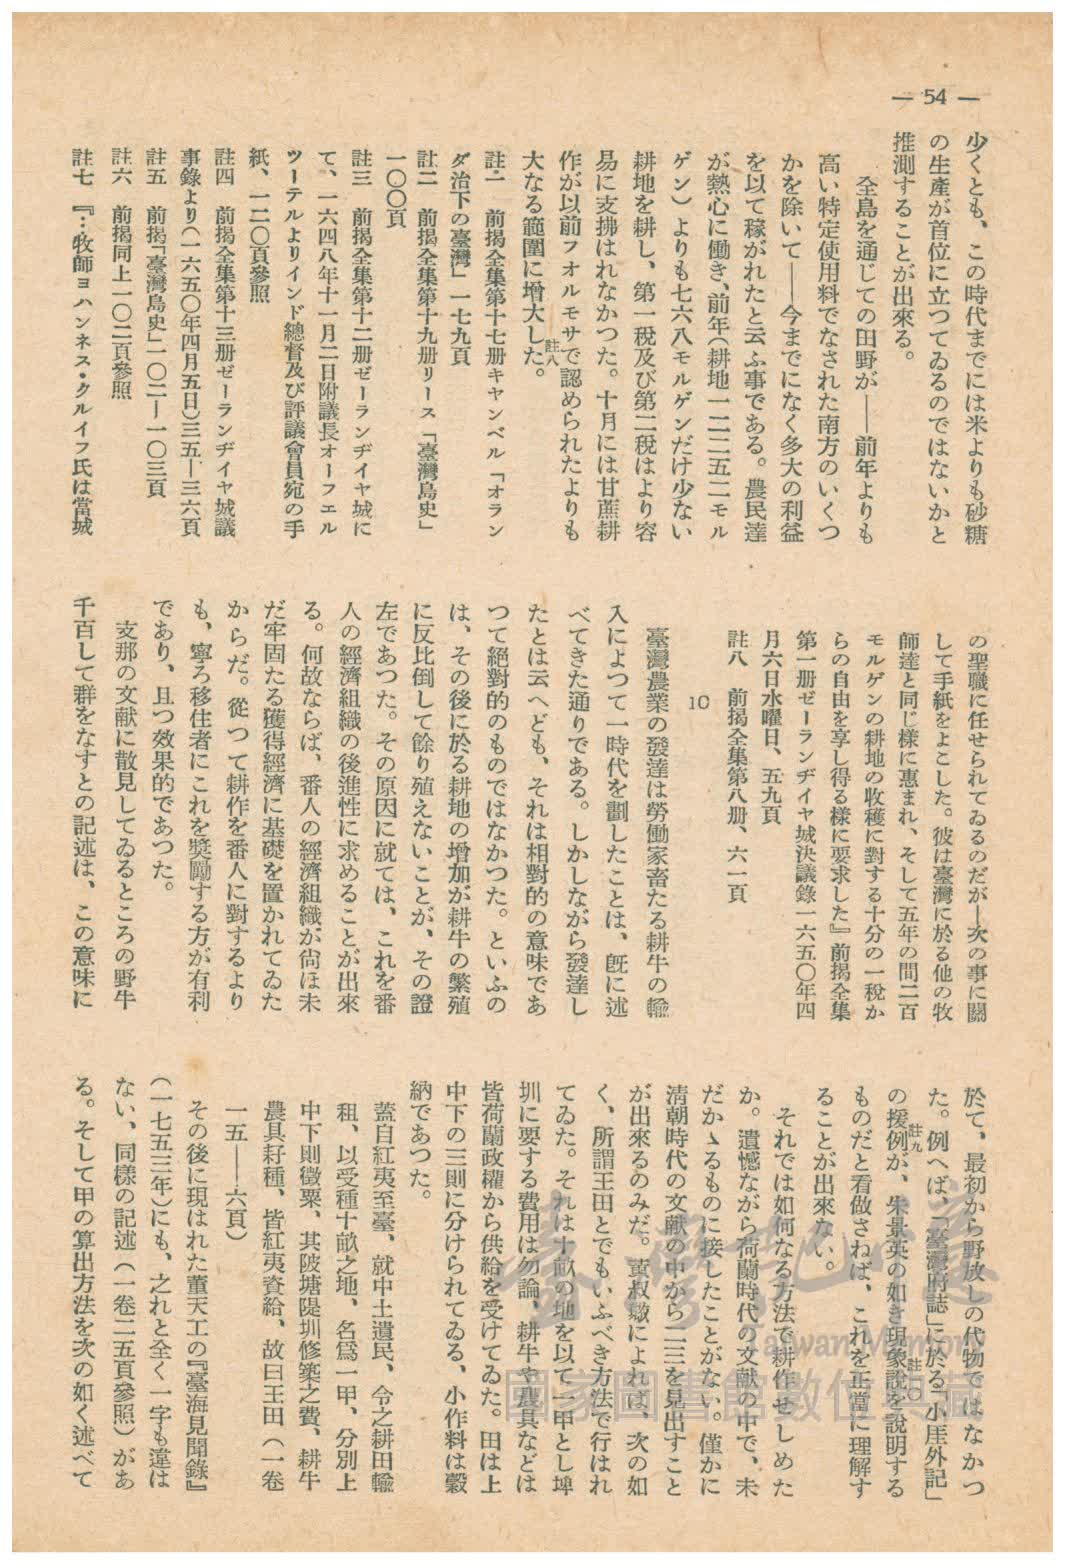 — 54 —
少くとも、この時代までには米よりも砂糖
の生產が首位に立つてゐるのではないかと
推測することが出來る。
全島を通じての田野が——前年よりも
高い特定使用料でなされた南方のいくつ
かを除いて——今までになく多大の利益
を以て稼がれたと云ふ事である。農民達
が熱心に働き、前年(耕地一二二五二モル
ゲン)よりも七六八モルゲンだけ少ない
耕地を耕し、第一稅及び第二稅はより容
易に支拂はれなかつた。十月には甘蔗耕
作が以前フオルモサで認められたよりも
大なる範圍に增大した。註八
註一 前揭全集第十七册キヤンベル「オラン
ダ治下の臺灣」一七九頁
註二 前揭全集第十九册リース「臺灣島史」
一〇〇頁
註三 前揭全集第十二册ゼーランヂイヤ城に
て、一六四八年十一月二日附議長オーフエル
ツーテルよりインド總督及び評議會員宛の手
紙、一二〇頁參照
註四 前揭全集第十三册ゼーランヂイヤ城議
事錄より(一六五〇年四月五日)三五—三六頁
註五 前揭「臺灣島史」一〇二—一〇三頁
註六 前揭同上一〇二頁參照
註七 『…牧師ヨハンネス・クルイフ氏は當城
の聖職に任せられてゐるのだが—次の事に關
して手紙をよこした。彼は臺灣に於る他の牧
師達と同じ樣に惠まれ、そして五年の間二百
モルゲンの耕地の收穫に對する十分の一稅か
らの自由を享し得る樣に要求した』前揭全集
第一册ゼーランヂイヤ城決議錄一六五〇年四
月六日水曜日、五九頁
註八 前揭全集第八册、六一頁
10
臺灣農業の發達は勞働家畜たる耕牛の輸
入によつて一時代を劃したことは、旣に述
べてきた通りである。しかしながら發達し
たとは云へども、それは相對的の意味であ
つて絕對的のものではなかつた。といふの
は、その後に於る耕地の增加が耕牛の繁殖
に反比倒して餘り殖えないことが、その證
左であつた。その原因に就ては、これを番
人の經濟組織の後進性に求めることが出來
る。何故ならば、番人の經濟組織が尙ほ未
だ牢固たる獲得經濟に基礎を置かれてゐた
からだ。從つて耕作を番人に對するより
も、寧ろ移住者にこれを奬勵する方が有利
であり、且つ效果的であつた。
支那の文献に散見してゐるところの野牛
千百して群をなすとの記述は、この意味に
於て、最初から野放しの代物ではなかつ
た。例へば、「臺灣府誌」に於る「小厓外記」註九
の援例が、朱景英の如き現象說を說明する註一〇
ものだと看做さねば、これを正當に理解す
ることが出來ない。
それでは如何なる方法で耕作せしめた
か。遺憾ながら荷蘭時代の文献の中で、未
だかゝるものに接したことがない。僅かに
淸朝時代の文献の中から二三を見出すこと
が出來るのみだ。黃叔璥によれば、次の如
く、所謂王田とでもいふべき方法で行はれ
てゐた。それは十畝の地を以て一甲とし埤
圳に要する費用は勿論、耕牛や農具などは
皆荷蘭政權から供給を受けてゐた。田は上
中下の三則に分けられてゐる、小作料は穀
納であつた。
蓋自紅夷至臺、就中土遺民、令之耕田輸
租、以受種十畝之地、名爲一甲、分別上
中下則徵粟、其陂塘隄圳修築之費、耕牛
農具耔種、皆紅夷資給、故曰王田(一卷
一五——六頁)
その後に現はれた董天工の『臺海見聞錄』
(一七五三年)にも、之れと全く一字も違は
ない、同樣の記述(一卷二五頁參照)があ
る。そして甲の算出方法を次の如く述べて
臺灣記憶
Taiwan Memory
國家圖書館數位典藏